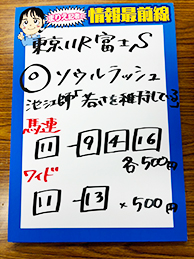 情報最前線
東京11R富士S
◎ソウルラッシュ
池江師「若さを維持して
馬連
11-9 4 16
各500円
ワイド
11-13 ×500円